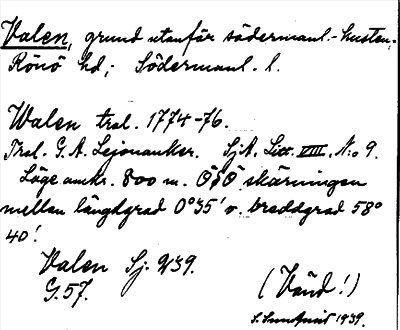 Valen, grund utanför södermanl.-kusten,
Rönö hd; Södermanl. l.
Walen trol. 1774-76.
Thol. G. A. Lejonanker. SjA, Litt. VIII, N:o 9.
Läge omkr. 800 m. ÖSÖ skärningen
mellan längdgrad 0°35' v. breddgrad 58°
40'.
Valen Sj. 239.
G. 57.
(Vänd!)
1939.